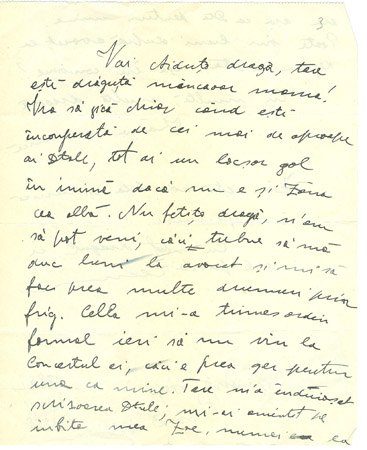 3
Vai Aiduță dragă, tare
ești drăguță mâncaoar mama!
Vra să zică chiar când ești
înconjurată de cei mai de aproape
ai Dtale, tot ai un locșor gol
în inimă dacă nu e și Zâna
cea albă. Nu fetițo dragă, n'am
să pot veni, căci trebue să mă
duc luni la avocat și mi-să
fac prea multe drumuri prin
frig. Cella mi-a trimes ordin
formal ieri să nu vin la
Concertul ei, căci e prea ger pentru
una ca mine. Tare m'a înduioșat
scrisoarea Dtale; mi-ai amintit pe
iubita mea Zoe, numai ea